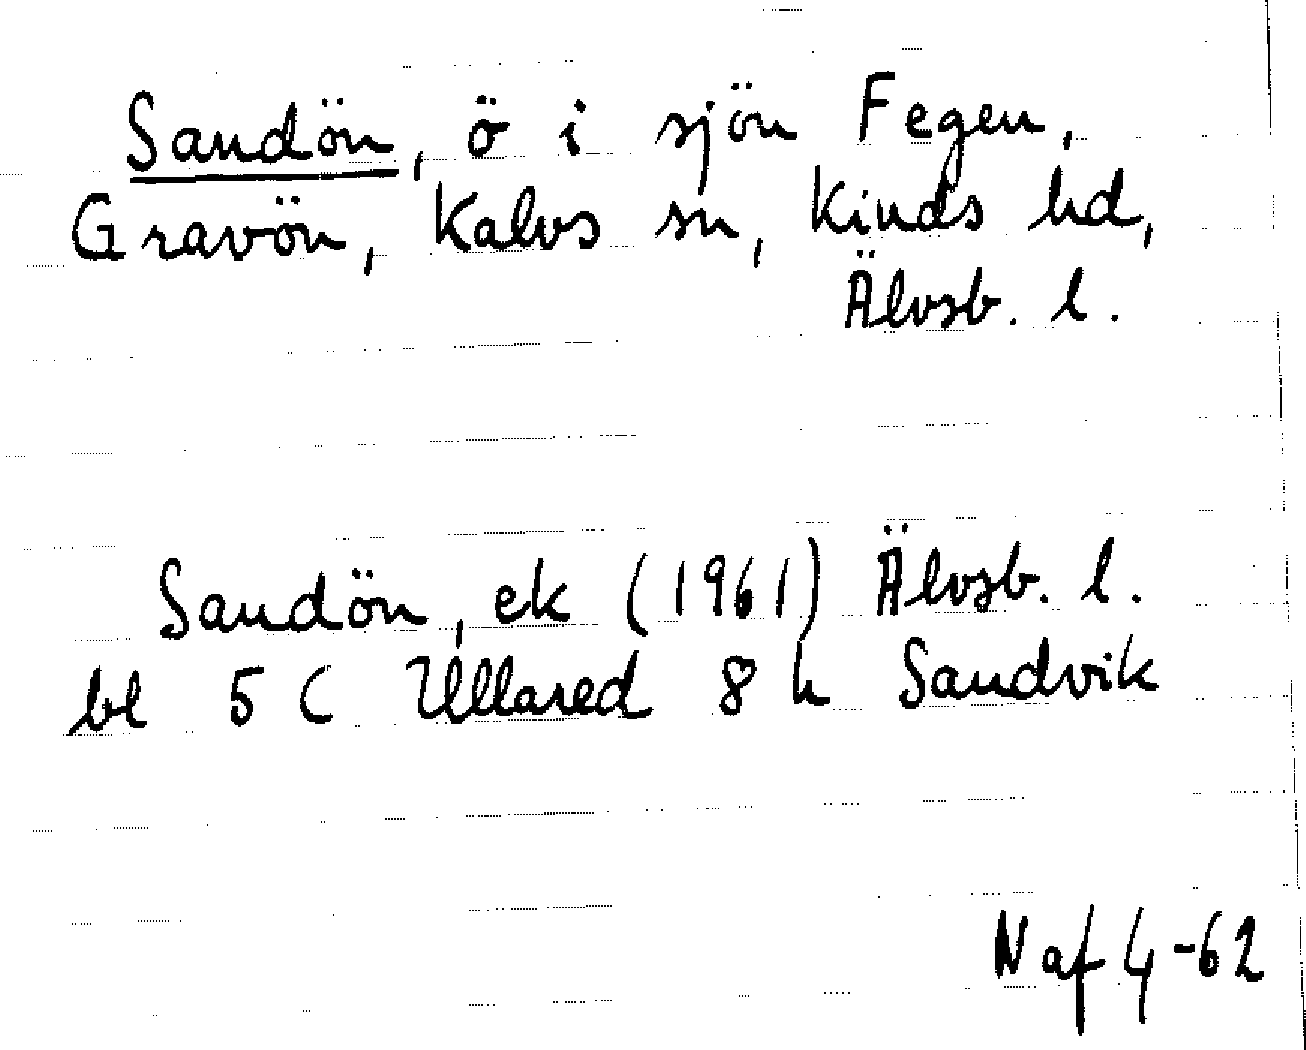 Sandön, ö i sjön Fegen,
Gravön, Kalvs sn, Kinds hd,
Älvsb. l.
Sandön, ek (1961) Älvsb. l.
bl 5 C Ullared 8 h Sandvik
N af 4-62